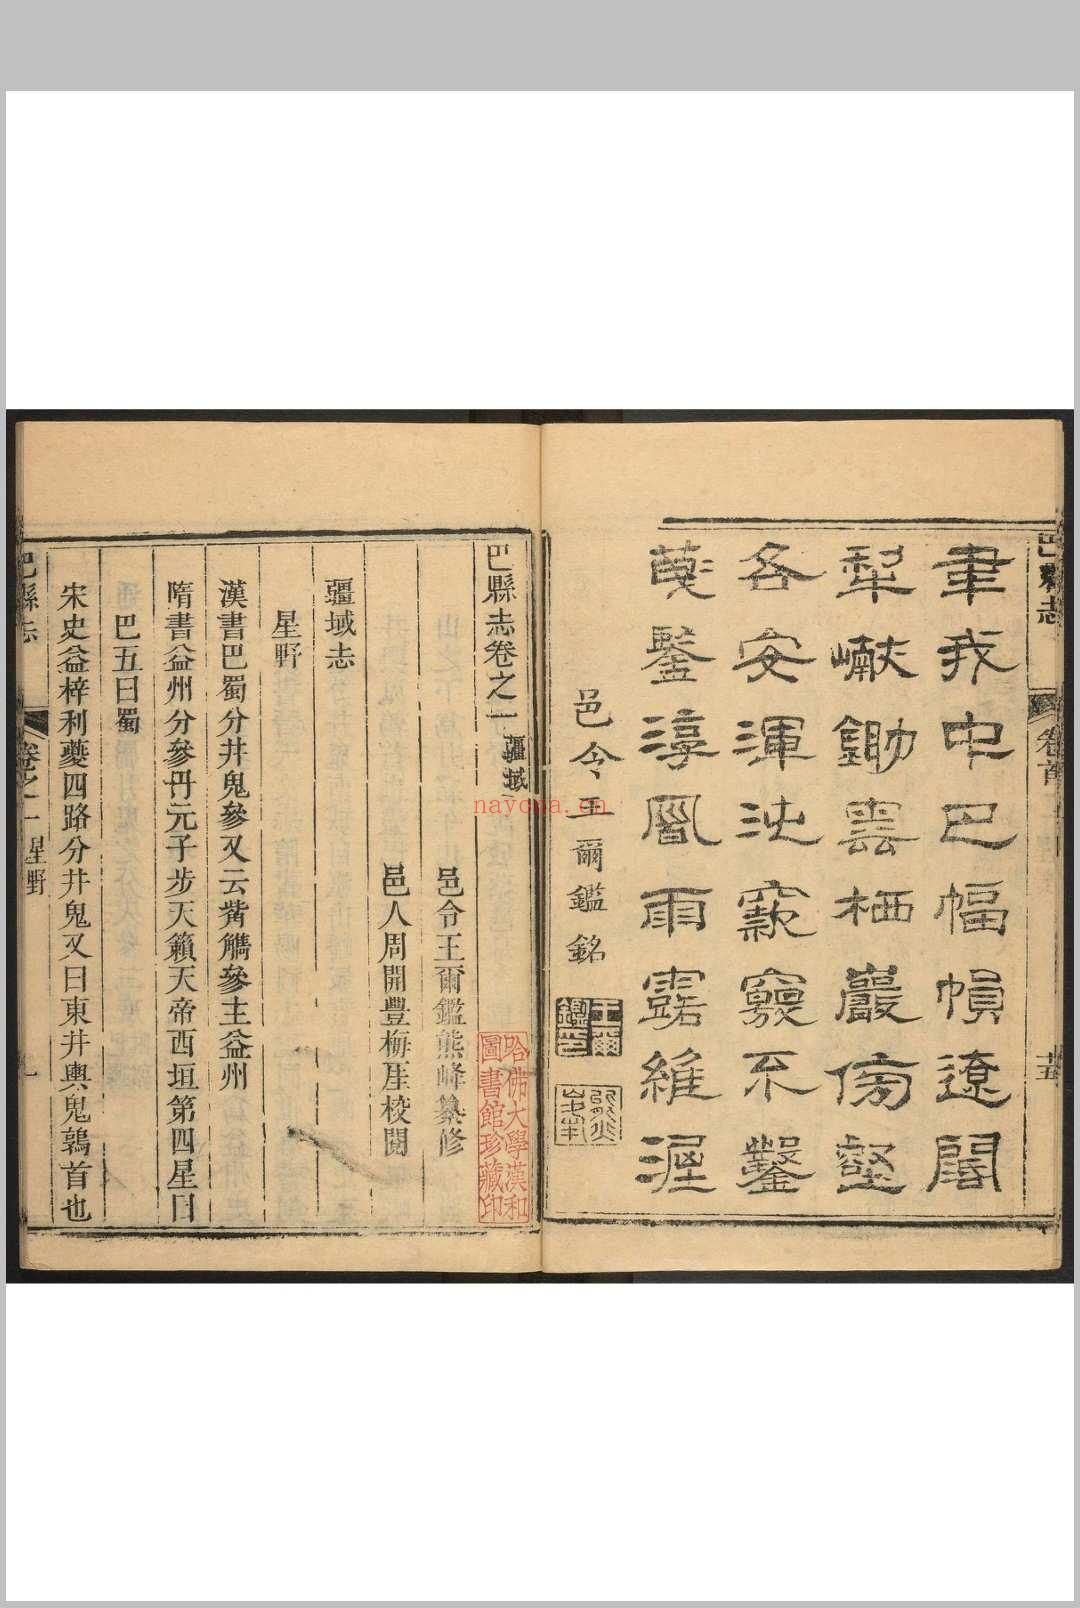 巴縣志
卷首
十五
聿我中巴幅幀遼闊
犂巘鋤雲栖巖傍壑
各安渾沌窾竅不鑿
淳風雨露維渥
邑令王爾鑑銘
王爾鑑印
巴縣志卷之一 疆域
邑令王爾鑑熊峰纂修
邑人周開豐梅厓校閱
疆域志
星野
漢書巴蜀分井鬼參又云觜觿參主益州
隋書益州分參丹元子步天籟天帝西垣第四星曰
巴五曰蜀
宋史益梓利夔四路分井鬼又曰東井輿鬼鶉首也
巴縣志
卷之一 星野
哈佛大學漢和圖書館珍藏印
nayona.cn